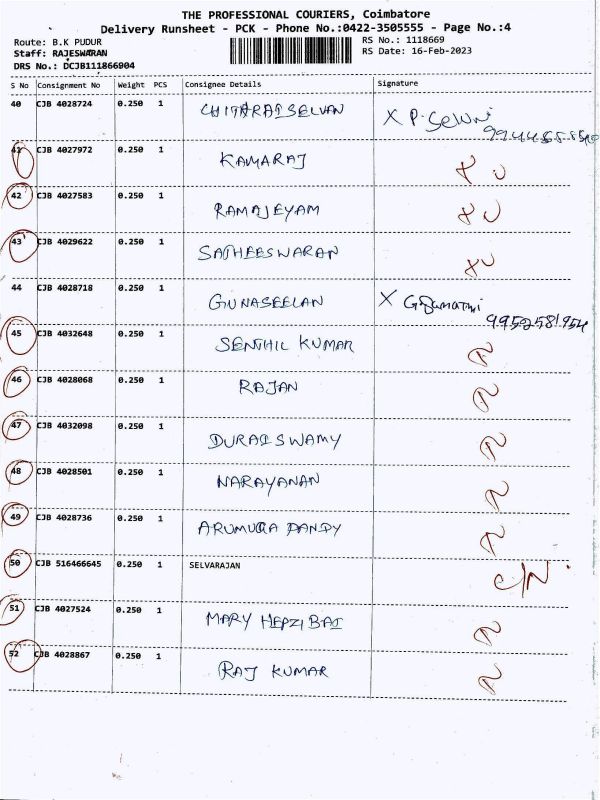 THE PROFESSIONAL COURIERS, Coimbatore
Delivery Runsheet - PCK - Phone No.:0422-3505555 - Page No.:4
Route: B.K PUDUR RS No.: 1118669
Staff: RAJESWARAN RS Date: 16-Feb-2023
DRS No.: DCJB111866904
S No Consignment No Weight PCS Consignee Details Signature
40 CJB 4028724 0.250 1 CHITARAISELVAN X P. Selvi
41 CJB 4027972 0.250 1 KAMARAJ
42 CJB 4027583 0.250 1 RAMAJEYAM
43 CJB 4029622 0.250 1 SATHEESWARAN
44 CJB 4028718 0.250 1 GUNASEELAN X
9952581954
45 CJB 4032648 0.250 1 SENTHIL KUMAR
46 CJB 4028068 0.250 1 RAJAN
47 CJB 4032098 0.250 1 DURAISWAMY
48 CJB 4028501 0.250 1 NARAYANAN
49 CJB 4028736 0.250 1 ARUMUGA PANDY
50 CJB 516466645 0.250 1 SELVARAJAN C/N
51 CJB 4027524 0.250 1 MARY HEPZIBAI
52 CJB 4028867 0.250 1 RAJ KUMAR